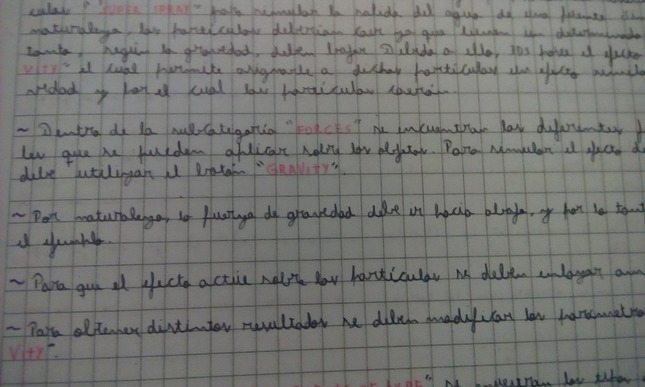 cular "SUPER SPRAY" para simular la salida del agua de una fuente
naturaleza, las partículas deberían caer ya que tienen un determinado
tanto, según la gravedad, deben bajar Debido a ello, 3DS posee el efecto
VITY" el cual permite asignarle a dichas partículas un efecto
vedad y por el cual las partículas caerán.
~ Dentro de la subcategoría "FORCES" se encuentran las diferentes
les que se pueden aplicar sobre los objetos. Para simular el efecto de
debe utilizar el botón "GRAVITY".
~ Por naturaleza, la fuerza de gravedad debe ir hacia abajo, y por lo tant
el ejemplo.
~ Para que el efecto actúe sobre las partículas se deben enlazar am
~ Para obtener distintos resultados se deben modificar los parámetro
VITY".
se muestran los tipos